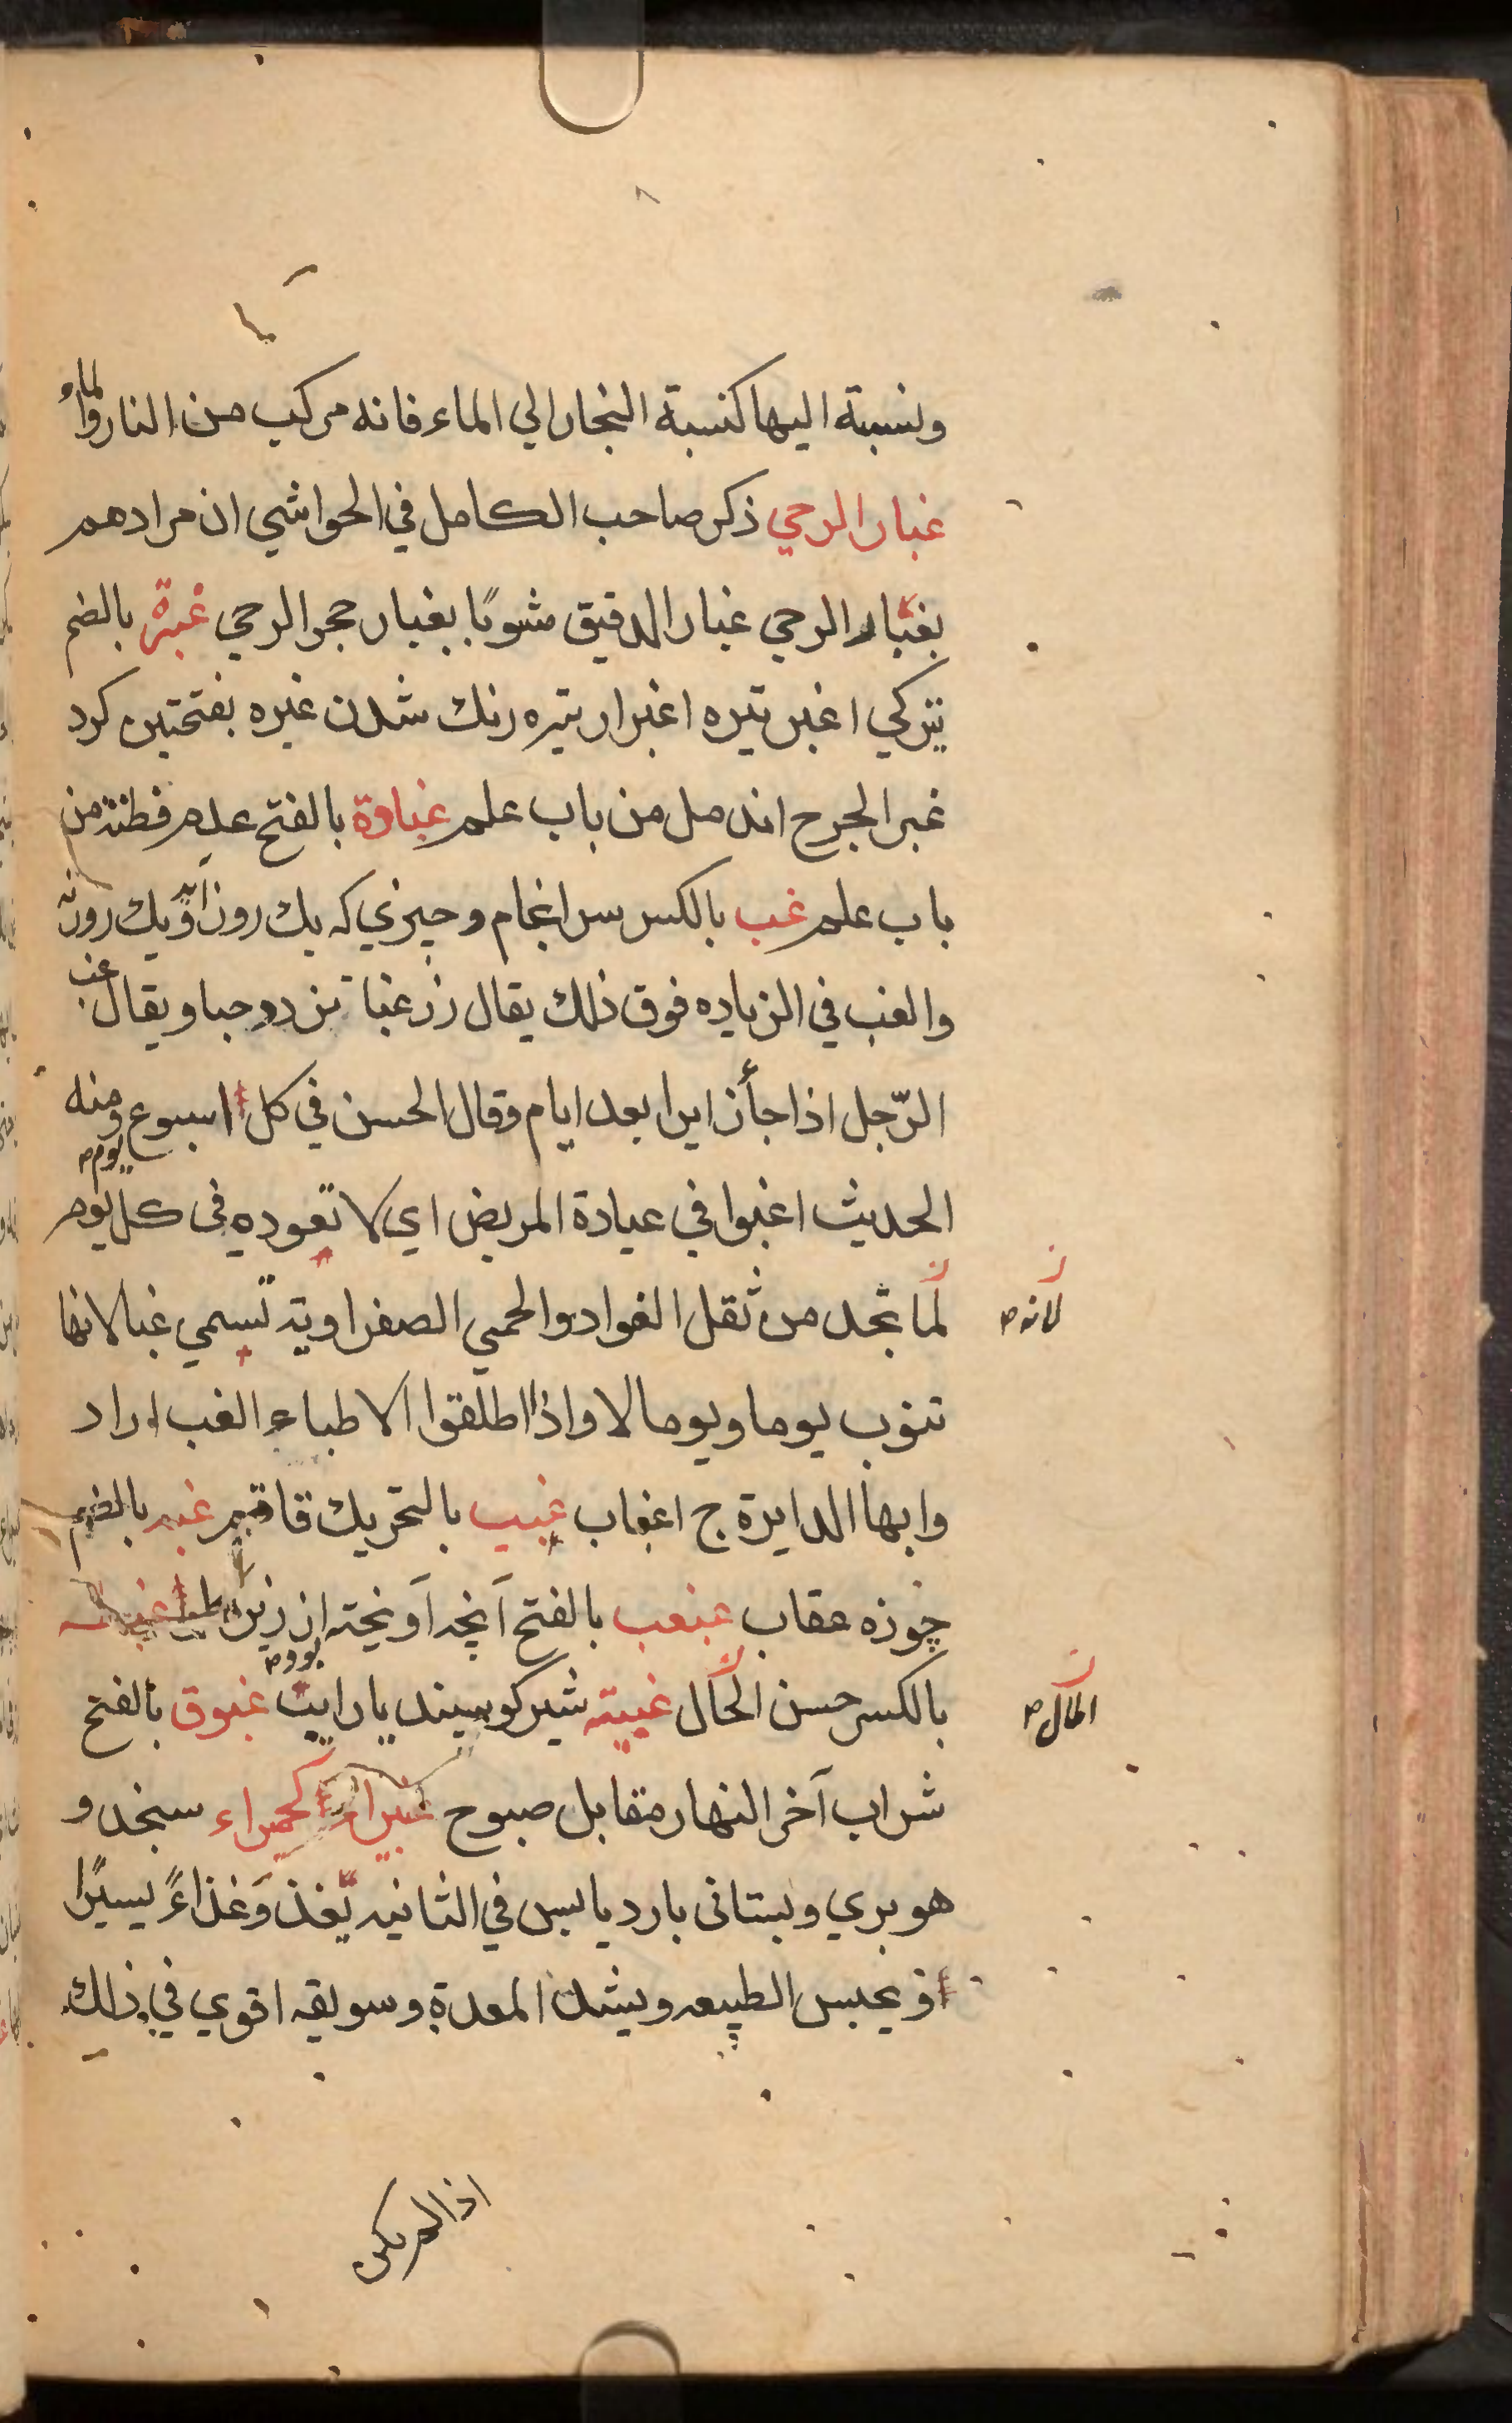 ونسبته اليها كنسبة البخار الي الماء فانه مركب من النار والماء
غبار الرحي ذكر صاحب الكامل في الحواشي ان مرادهم
بغبار الرحي غبار الدقيق مشوبًا بغبار حجر الرحي غبرة بالضم
تيركي اغبر تيره اغبرار تيره رنك شدن غبره بفتحتين كرد
غبر الجرح اندمل من باب علم غباوة بالفتح عدم فطنة من
باب علم غب بالكسر سرانجام و چيزي كه يك روز آيد و يك روز نه
والغب في الزياده فوق ذلك يقال زر غبا تزدد حبا ويقال غب
الرّجل اذا جأ زايرا بعد ايام وقال الحسن في كل اسبوع ومنه
الحديث اغبوا في عيادة المريض اي لا تعوده في كل يوم
يوم
لما تجد من ثقل الفواد والحمي الصفراويه تسمي غبا لانها
لانه
تنوب يوما ويوما لا واذا اطلقوا الاطباء الغب اراد
وابها الدايرة ج اغباب غبيب بالتحريك قاقم غبر بالضم
چوزه عقاب غبغب بالفتح آنچه آويخته از زير
بالكسر حسن الحال غبيته شير كوسپند يار ايت غبوق بالفتح
بود
المال
شراب آخر النهار مقابل صبوح غبيرا كحميراء سنجد و
هو بري وبستاني بارد يابس في الثانيه يغذو غذاءً يسيرًا
و يحبس الطبيعه ويشد المعدة وسويقه اقوي في ذلك
اذا لم يكن